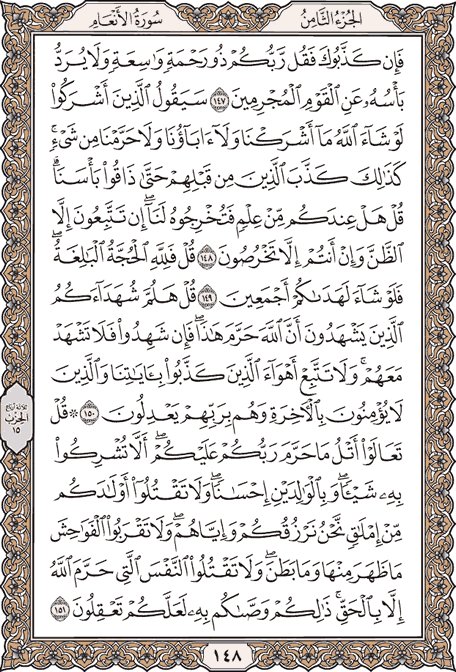 سُورَةُ الأَنْعَامِ
الجُزْءُ الثَّامِنُ
فَإِن كَذَّبُوكَ فَقُل رَّبُّكُمْ ذُو رَحْمَةٍ وَٰسِعَةٍ وَلَا يُرَدُّ
بَأْسُهُۥ عَنِ ٱلْقَوْمِ ٱلْمُجْرِمِينَ ١٤٧ سَيَقُولُ ٱلَّذِينَ أَشْرَكُوا۟
لَوْ شَآءَ ٱللَّهُ مَآ أَشْرَكْنَا وَلَآ ءَابَآؤُنَا وَلَا حَرَّمْنَا مِن شَىْءٍۚ
كَذَٰلِكَ كَذَّبَ ٱلَّذِينَ مِن قَبْلِهِمْ حَتَّىٰ ذَاقُوا۟ بَأْسَنَاۗ
قُلْ هَلْ عِندَكُم مِّنْ عِلْمٍ فَتُخْرِجُوهُ لَنَآۖ إِن تَتَّبِعُونَ إِلَّا
ٱلظَّنَّ وَإِنْ أَنتُمْ إِلَّا تَخْرُصُونَ ١٤٨ قُلْ فَلِلَّهِ ٱلْحُجَّةُ ٱلْبَٰلِغَةُۖ
فَلَوْ شَآءَ لَهَدَىٰكُمْ أَجْمَعِينَ ١٤٩ قُلْ هَلُمَّ شُهَدَآءَكُمُ
ٱلَّذِينَ يَشْهَدُونَ أَنَّ ٱللَّهَ حَرَّمَ هَٰذَاۖ فَإِن شَهِدُوا۟ فَلَا تَشْهَدْ
مَعَهُمْۚ وَلَا تَتَّبِعْ أَهْوَآءَ ٱلَّذِينَ كَذَّبُوا۟ بِـَٔايَٰتِنَا وَٱلَّذِينَ
لَا يُؤْمِنُونَ بِٱلْـَٔاخِرَةِ وَهُم بِرَبِّهِمْ يَعْدِلُونَ ١٥٠ ۞ قُلْ
تَعَالَوْا۟ أَتْلُ مَا حَرَّمَ رَبُّكُمْ عَلَيْكُمْۖ أَلَّا تُشْرِكُوا۟
بِهِۦ شَيْـًٔاۖ وَبِٱلْوَٰلِدَيْنِ إِحْسَٰنًاۖ وَلَا تَقْتُلُوٓا۟ أَوْلَٰدَكُم
مِّنْ إِمْلَٰقٍۖ نَّحْنُ نَرْزُقُكُمْ وَإِيَّاهُمْۖ وَلَا تَقْرَبُوا۟ ٱلْفَوَٰحِشَ
مَا ظَهَرَ مِنْهَا وَمَا بَطَنَۖ وَلَا تَقْتُلُوا۟ ٱلنَّفْسَ ٱلَّتِى حَرَّمَ ٱللَّهُ
إِلَّا بِٱلْحَقِّۚ ذَٰلِكُمْ وَصَّىٰكُم بِهِۦ لَعَلَّكُمْ تَعْقِلُونَ ١٥١
ثلاثة أرباع
الحزب
١٥
١٤٨